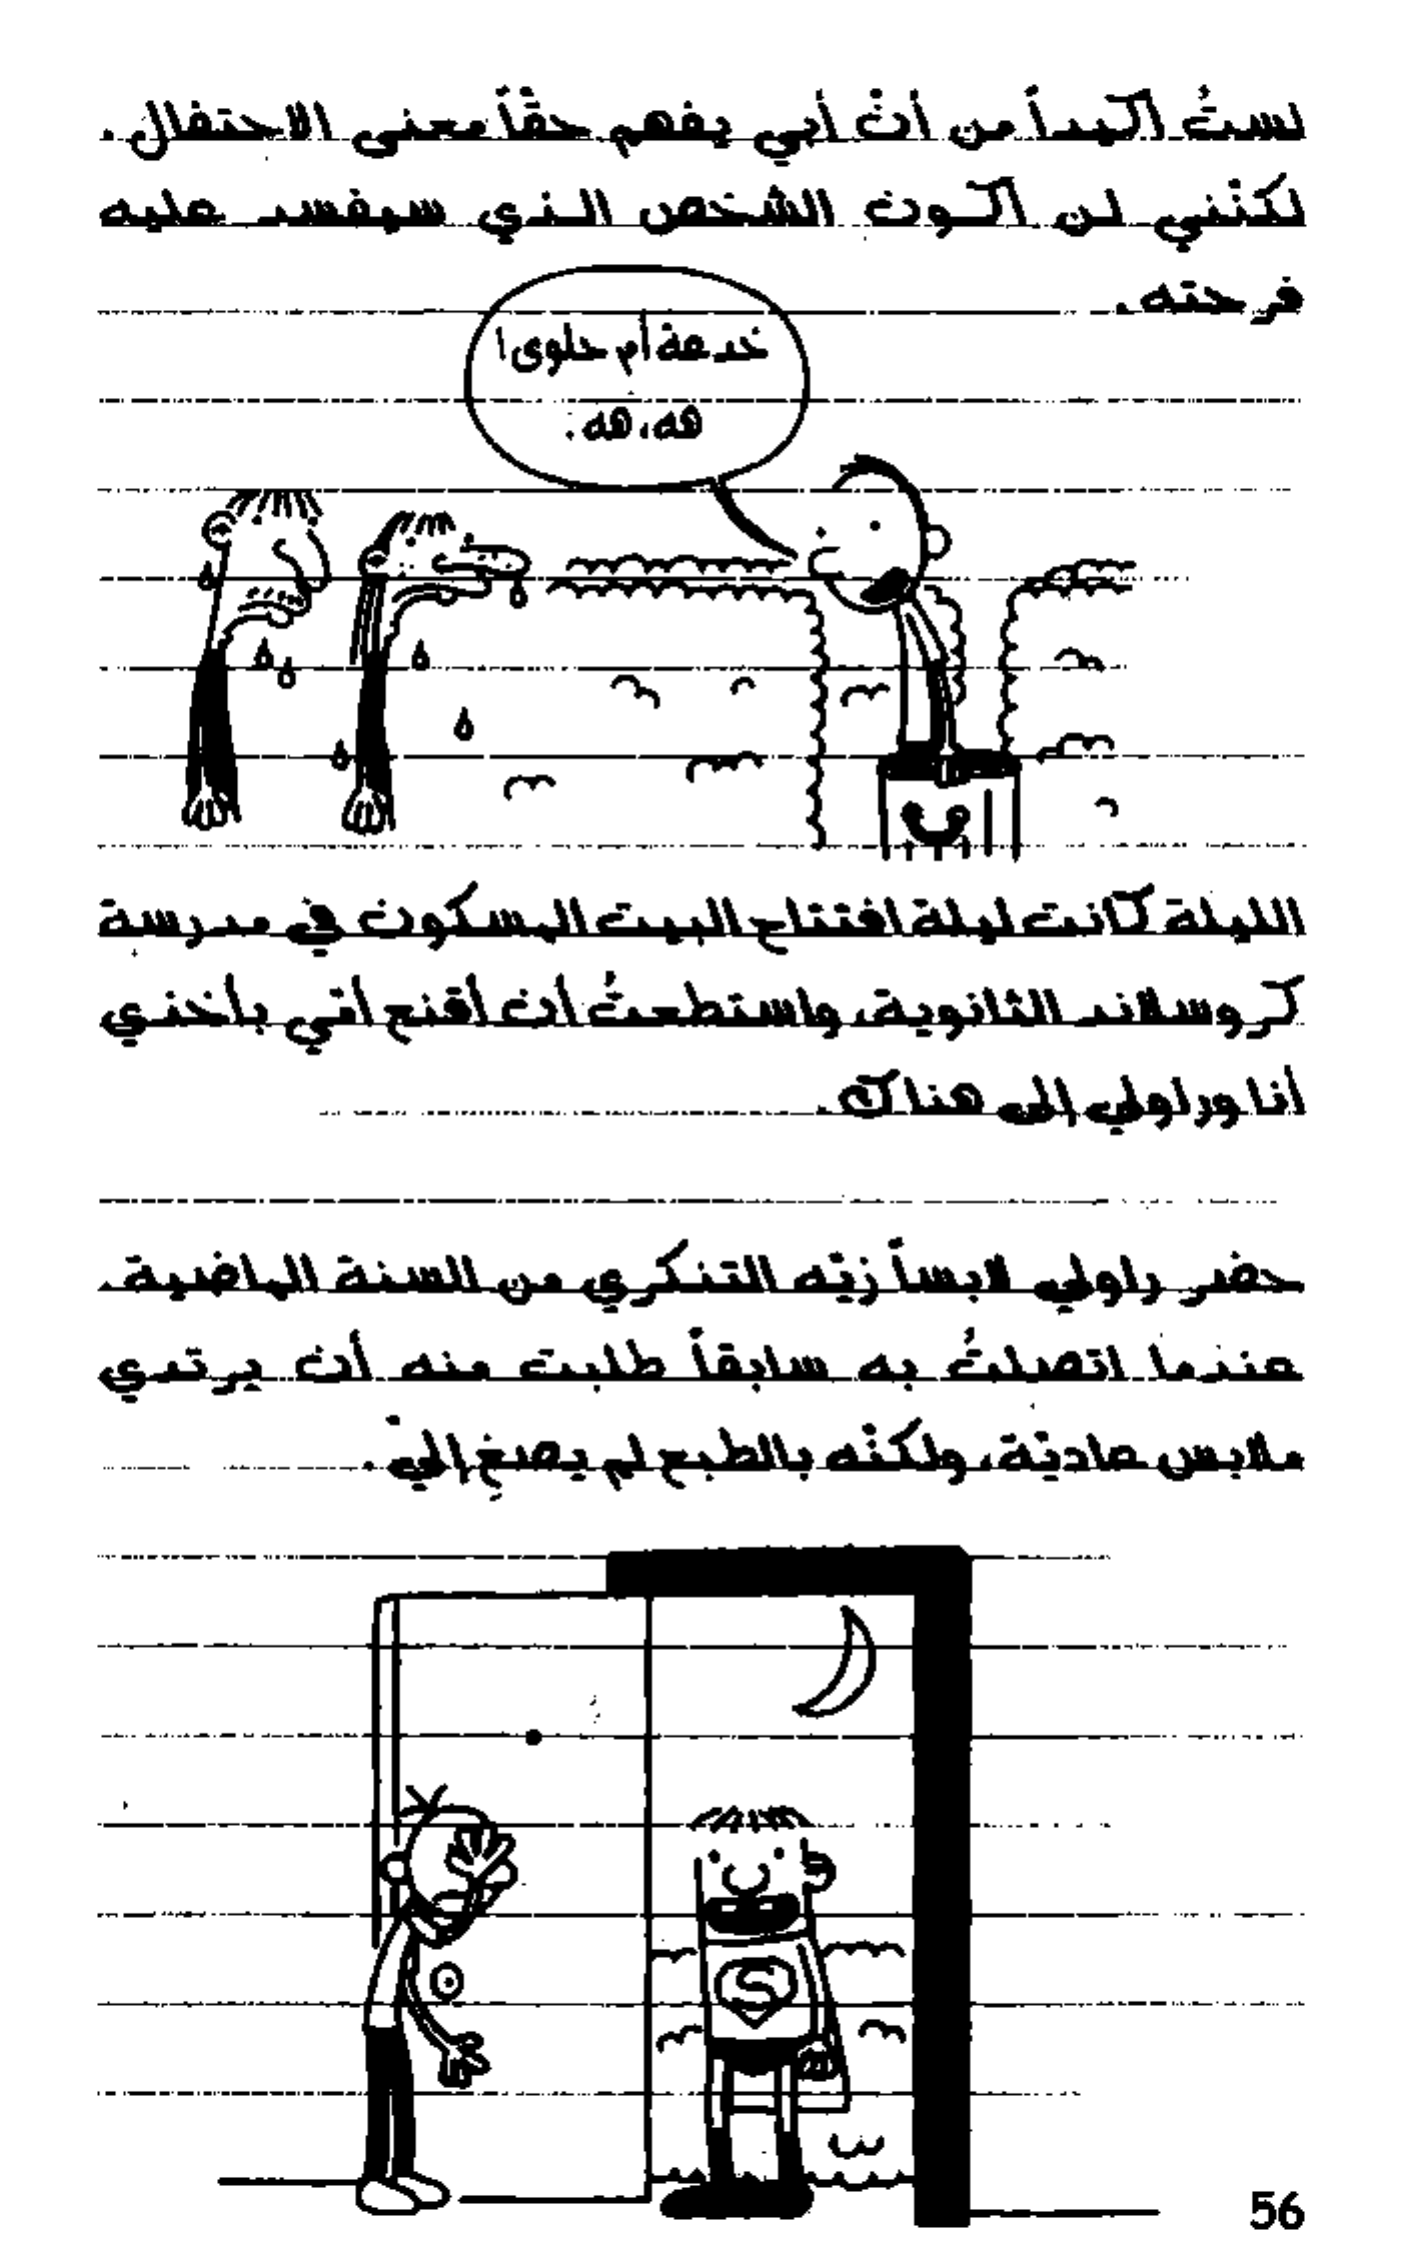 لستُ أكيداً من أنّ أبي يفهم حقّاً معنى الاحتفال.
لكنّني لن أكون الشخص الذي سيفسد عليه
فرحته.
خدعة أم حلوى!
هه، هه.
الليلة كانت ليلة افتتاح البيت المسكون في مدرسة
كروسلاند الثانوية، واستطعتُ أن أقنع أمّي بأخذي
أنا وراولي إلى هناك.
حضر راولي لابساً زيّه التنكري من السنة الماضية.
عندما اتصلتُ به سابقاً طلبت منه أن يرتدي
ملابس عاديّة، ولكنّه بالطبع لم يصغِ إليّ.
S
56